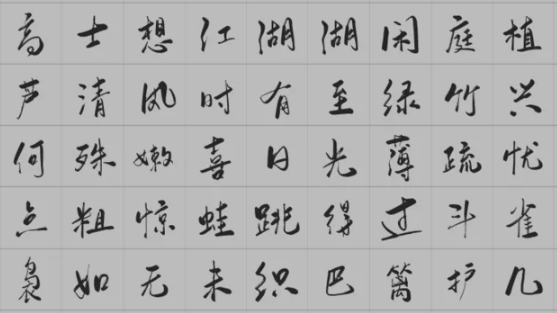 高士想江湖湖闲庭植
芦清风时有至绿竹兴
何殊嫩喜日光薄疏忧
点粗惊蛙跳得过斗雀
袅如无未织巴篱护几